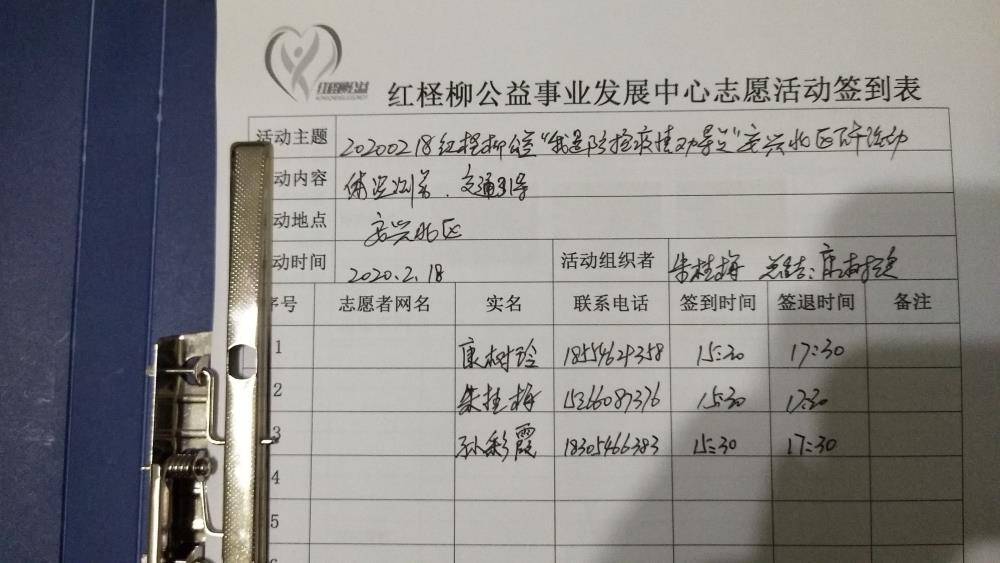 红柽柳公益
红柽柳公益事业发展中心志愿活动签到表
活动主题 20200218红柽柳公益“我是防控疫情劝导员”安兴北区 活动
动内容 体温测量、交通引导
动地点 安兴北区
动时间 2020.2.18 活动组织者 朱桂梅 总结:康树玲
序号 志愿者网名 实名 联系电话 签到时间 签退时间 备注
1 康树玲 18554621358 15:30 17:30
2 朱桂梅 15266087376 15:30 17:30
3 孙彩霞 18305466383 15:30 17:30
4
5